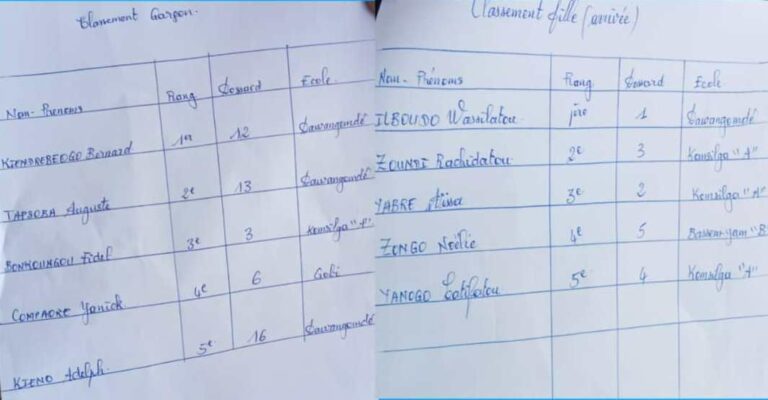 Classement Garçon.
Nom-Prénoms Rang Dossard Ecole
KIENDREBEOGO Bernard 1er 12 Sawangomdé
TAPSOBA Auguste 2e 13 Sawangomdé
BONKOUNGOU Fidel 3e 3 Komsilga "A"
COMPAORE Yanick 4e 6 Gobi
KIENO Adolph. 5e 16 Sawangomdé
Classement fille (arrivée)
Nom-Prénoms Rang Dossard Ecole
ILBOUDO Wassilatou 1ère 1 Sawangomdé
ZOUNDI Rachidatou 2e 3 Komsilga "A"
YABRE Aïssa 3e 2 Komsilga "A"
ZONGO Noélie 4e 5 "B
YANOGO 5e 4 Komsilga "A"